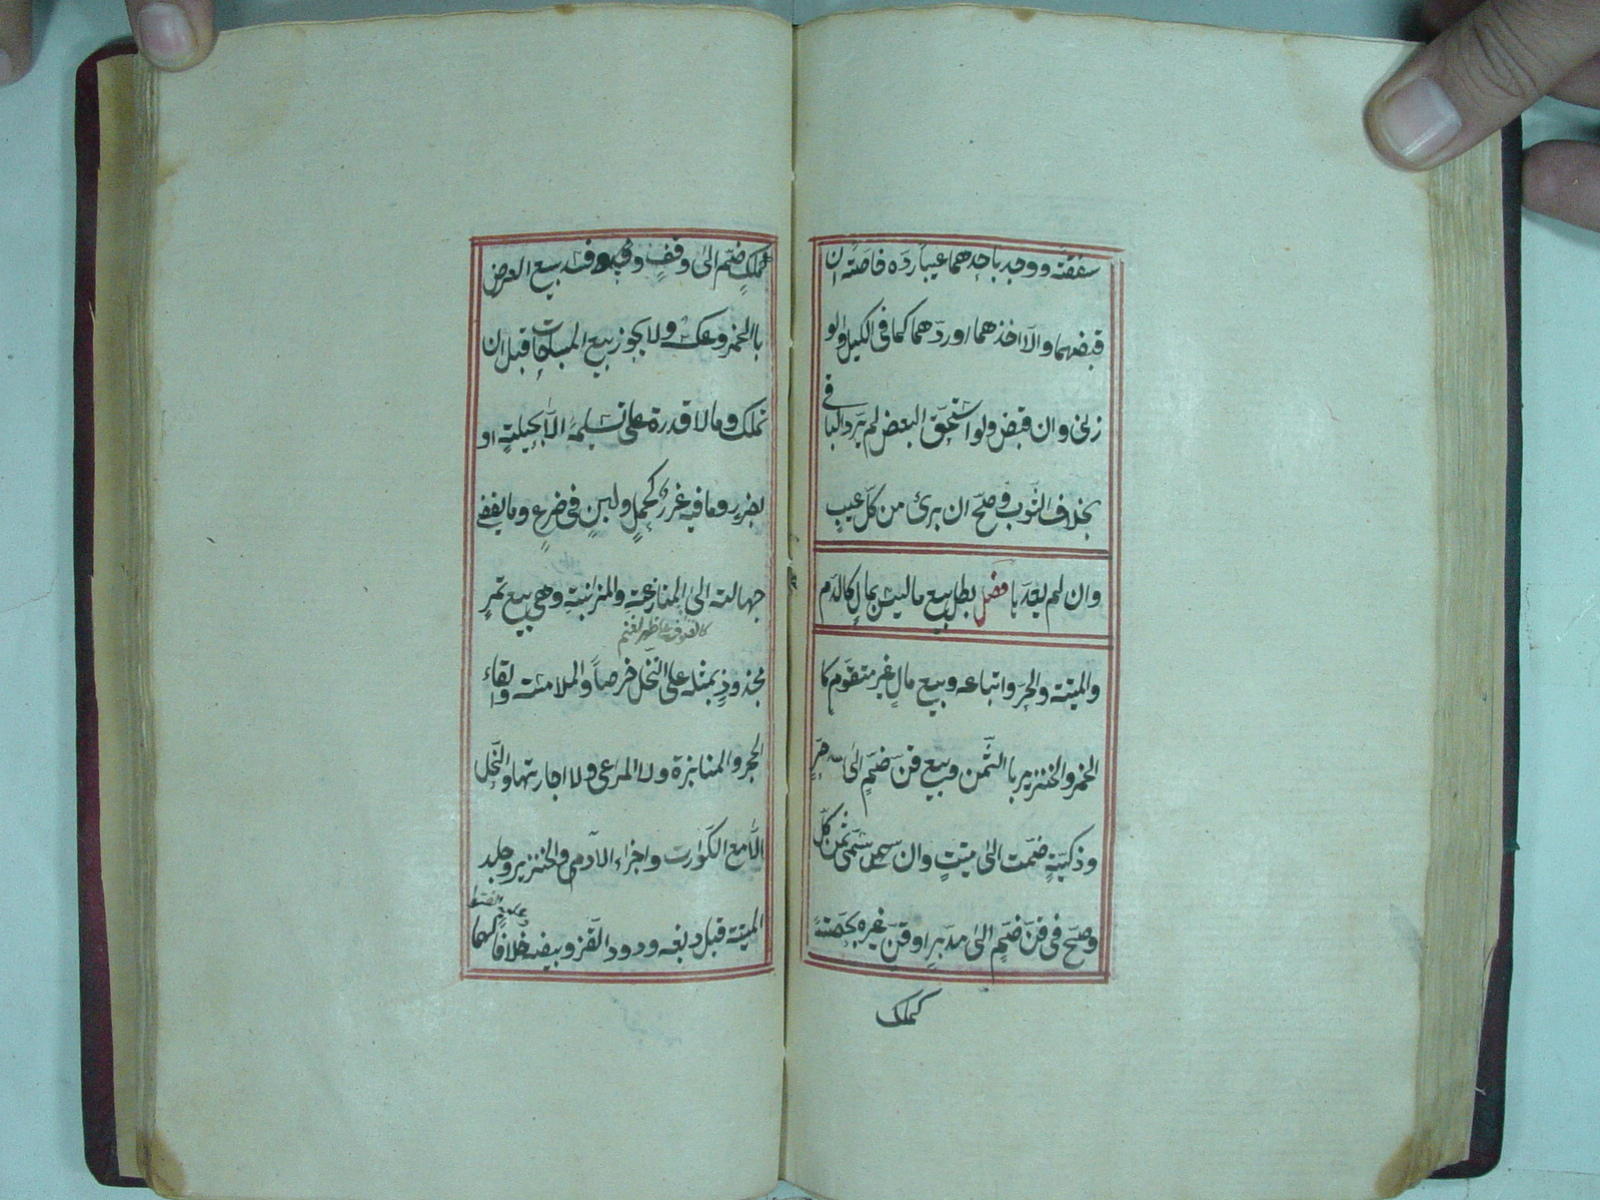 صفقة ووجد باحدهما عيبا رده خاصته ان
قبضهما والا اخذهما او ردهما كما في الكيل والو
زني وان قبض ولو استحق البعض لم يرد البا في
بخلاف الثوب وصح ان برئ من كل عيب
وان لم يعدها فصل بطل بيع ما ليس بمال كالدم
والميتة والحر واتباعه وبيع مال غير متقوم كا
الخمر والخنزير با الثمن وبيع قن ضم الى حر
وذكية ضمت الى ميتة وان سمى ثمن كل
وصح في قن ضم الى مدبر او قن غيره بحصته
كملك
كملك ضم الى وقف وفسد بيع العرض
باالخمر وعكسه ولا يجوز بيع المباحات قبل ان
تملك وما لا قدرة على تسليمه الا بحيلة او
بضرر وما فيه غرر كحمل ولبن في ضرع وما يفضي
جهالته الى المنازعة والمزابنة وهي بيع تمر
كالصوف على ظهر الغنم
مجذوذ بمثله على النخل خرصا والملامسة والقاء
الحجر والمنابزة ولا المراعي ولا اجارتها والنحل
الا مع الكوارت واجزاء الادمي والخنزير وجلد
الميتة قبل دبغه ودود القز وبيضه خلافا لهما